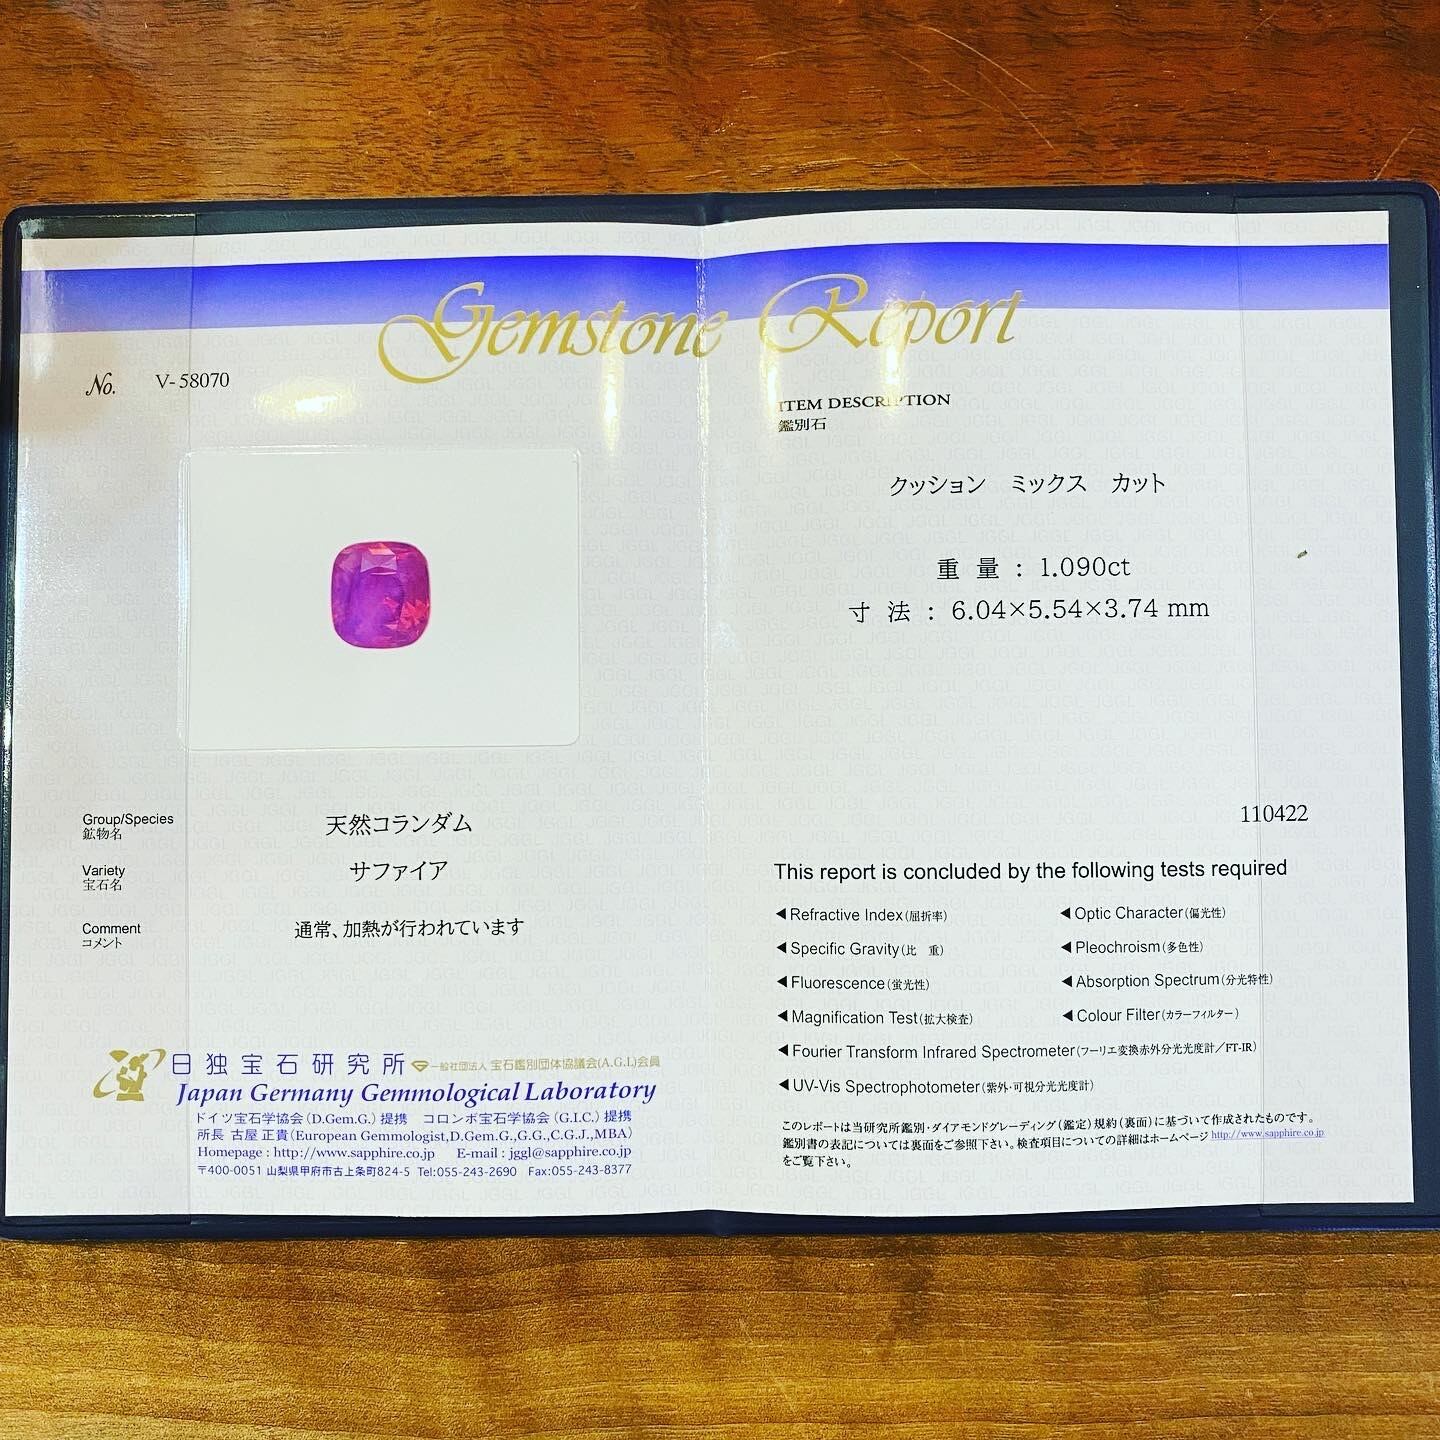 Gemstone Report
No. V-58070
Group/Species
鉱物名
天然コランダム
Variety
宝石名
サファイア
Comment
コメント
通常、加熱が行われています
日独宝石研究所
一般社団法人 宝石鑑別団体協議会(A.G.L)会員
Japan Germany Gemmological Laboratory
ドイツ宝石学協会(D.Gem.G.)提携 コロンボ宝石学協会(G.I.C.)提携
所長 古屋 正貴(European Gemmologist,D.Gem.G.,G.G.,C.G.J.,MBA)
Homepage : http://www.sapphire.co.jp E-mail : jggl@sapphire.co.jp
〒400-0051 山梨県甲府市古上条町824-5 Tel:055-243-2690 Fax:055-243-8377
ITEM DESCRIPTION
鑑別石
クッション ミックス カット
重 量 : 1.090ct
寸 法 : 6.04×5.54×3.74 mm
110422
This report is concluded by the following tests required
◀Refractive Index(屈折率) ◀Optic Character(偏光性)
◀Specific Gravity(比 重) ◀Pleochroism(多色性)
◀Fluorescence(蛍光性) ◀Absorption Spectrum(分光特性)
◀Magnification Test(拡大検査) ◀Colour Filter(カラーフィルター)
◀Fourier Transform Infrared Spectrometer(フーリエ変換赤外分光光度計/FT-IR)
◀UV-Vis Spectrophotometer(紫外・可視分光光度計)
このレポートは当研究所鑑別・ダイアモンドグレーディング(鑑定)規約(裏面)に基づいて作成されたものです。
鑑別書の表記については裏面をご参照下さい。検査項目についての詳細はホームページ http://www.sapphire.co.jp
をご覧下さい。